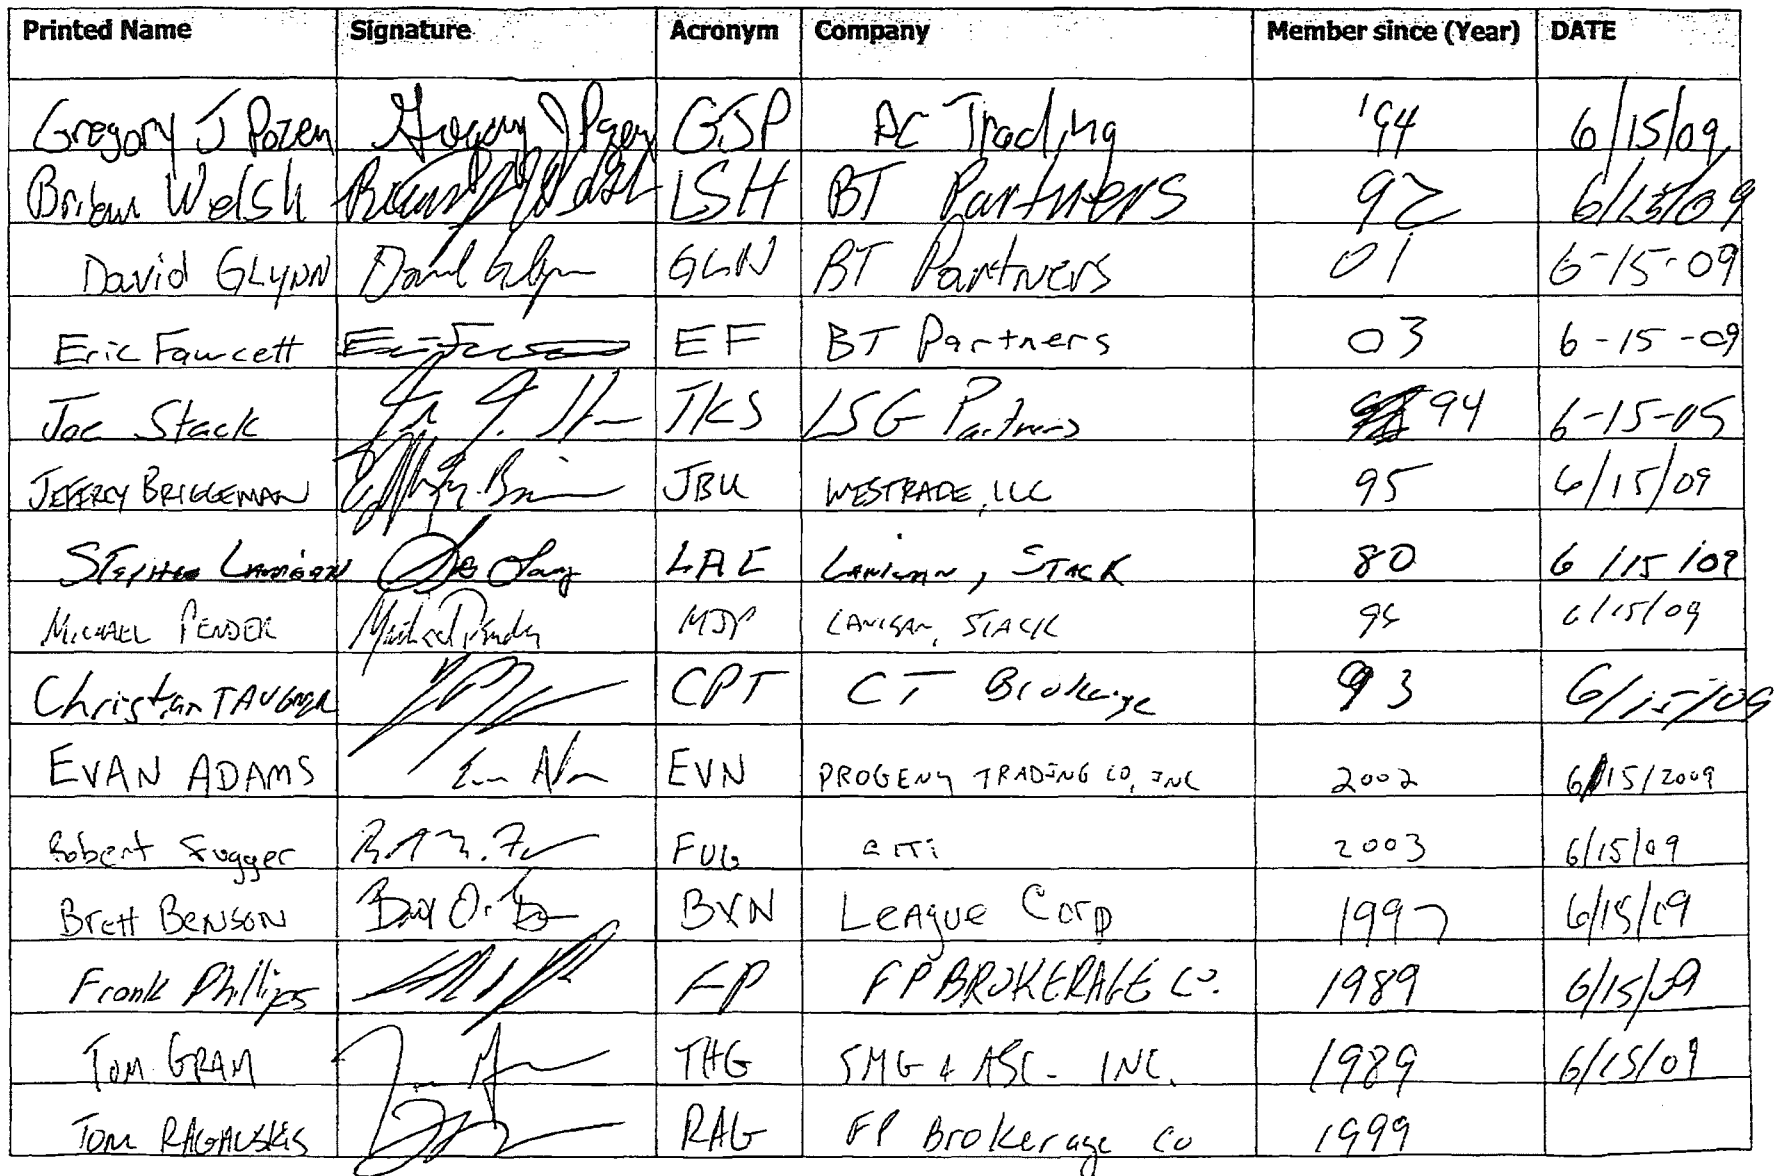 Printed Name Signature Acronym Company Member since (Year) DATE
Gregory J Pozen Gregory J Pozen GJP AC Trading '94 6/15/09
Brian Welsh LSH BT Partners 92 6/15/09
David GLYNN David Glynn GLN BT Partners 01 6-15-09
Eric Fawcett EF BT Partners 03 6-15-09
Joe Stack TKS LSG Partners 94 6-15-09
JEFFREY BRIGGEMAN JBU WESTRADE, LLC 95 6/15/09
STEPHEN LANIGAN LAE LANIGAN, STACK 80 6/15/09
MICHAEL PENDER Michael Pender MJP LANIGAN, STACK 6/15/09
Christian TAUGNER CPT CT Brokerage 93 6/15/09
EVAN ADAMS EVN PROGENY TRADING CO, INC 2002 6/15/2009
Robert Fugger FUG 2003 6/15/09
Brett BENSON BXN LEAGUE Corp 1997 6/15/09
Frank Phillips FP FP BROKERAGE Co. 1989 6/15/09
TOM GRAM THG SMG & ASC. INC. 1989 6/15/09
TOM RAGAUSKIS RAG FP Brokerage Co 1999